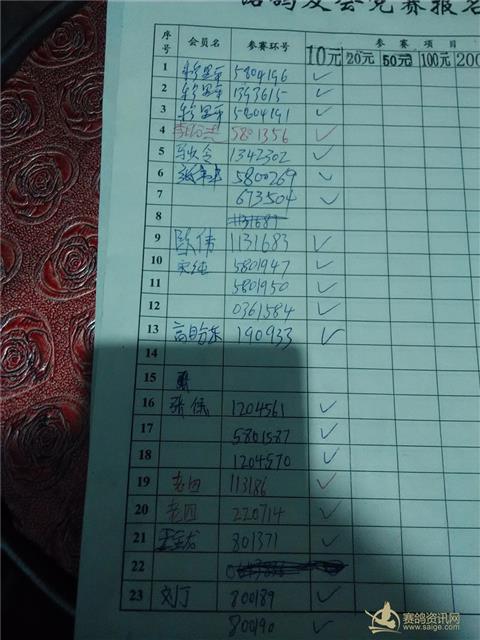 鸽友会竞赛报名
序号 会员名 参赛环号 参赛项目
10元 20元 50元 100元 200
1 5804196 ✓
2 1393615 ✓
3 5804191 ✓
4 5801356 ✓
5 1342302 ✓
6 5800269 ✓
7 673504 ✓
8
9 陈伟 1131683 ✓
10 5801947 ✓
11 5801950 ✓
12 0361584 ✓
13 190933 ✓
14
15
16 张保 1204561 ✓
17 5801587 ✓
18 1204570 ✓
19 老四 113186 ✓
20 老四 220714 ✓
21 801371 ✓
22
23 刘丁 800189 ✓
800190 ✓
赛鸽资讯网
www.saige.com